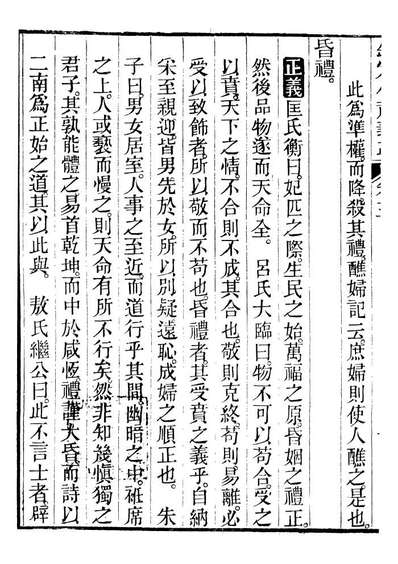 此為準權而降殺其禮醮婦記云庶婦則使人醮之是也
昏禮。
正義匡氏衡曰妃匹之際生民之始萬福之原昏姻之禮正
然後品物遂而天命全。呂氏大臨曰物不可以苟合受之
以賁天下之情不合則不成其合也敬則克終苟則易離必
受以致飾者所以敬而不苟也昏禮者其受賁之義乎自納
采至親迎皆男先於女所以別疑遠恥成婦之順正也。朱
子曰男女居室人事之至近而道行乎其間幽暗之中袵席
之上人或褻而慢之則天命有所不行矣然非知幾慎獨之
君子其孰能體之易首乾坤而中於咸恆禮謹大昏而詩以
二南為正始之道其以此與。敖氏繼公曰此不言士者辟